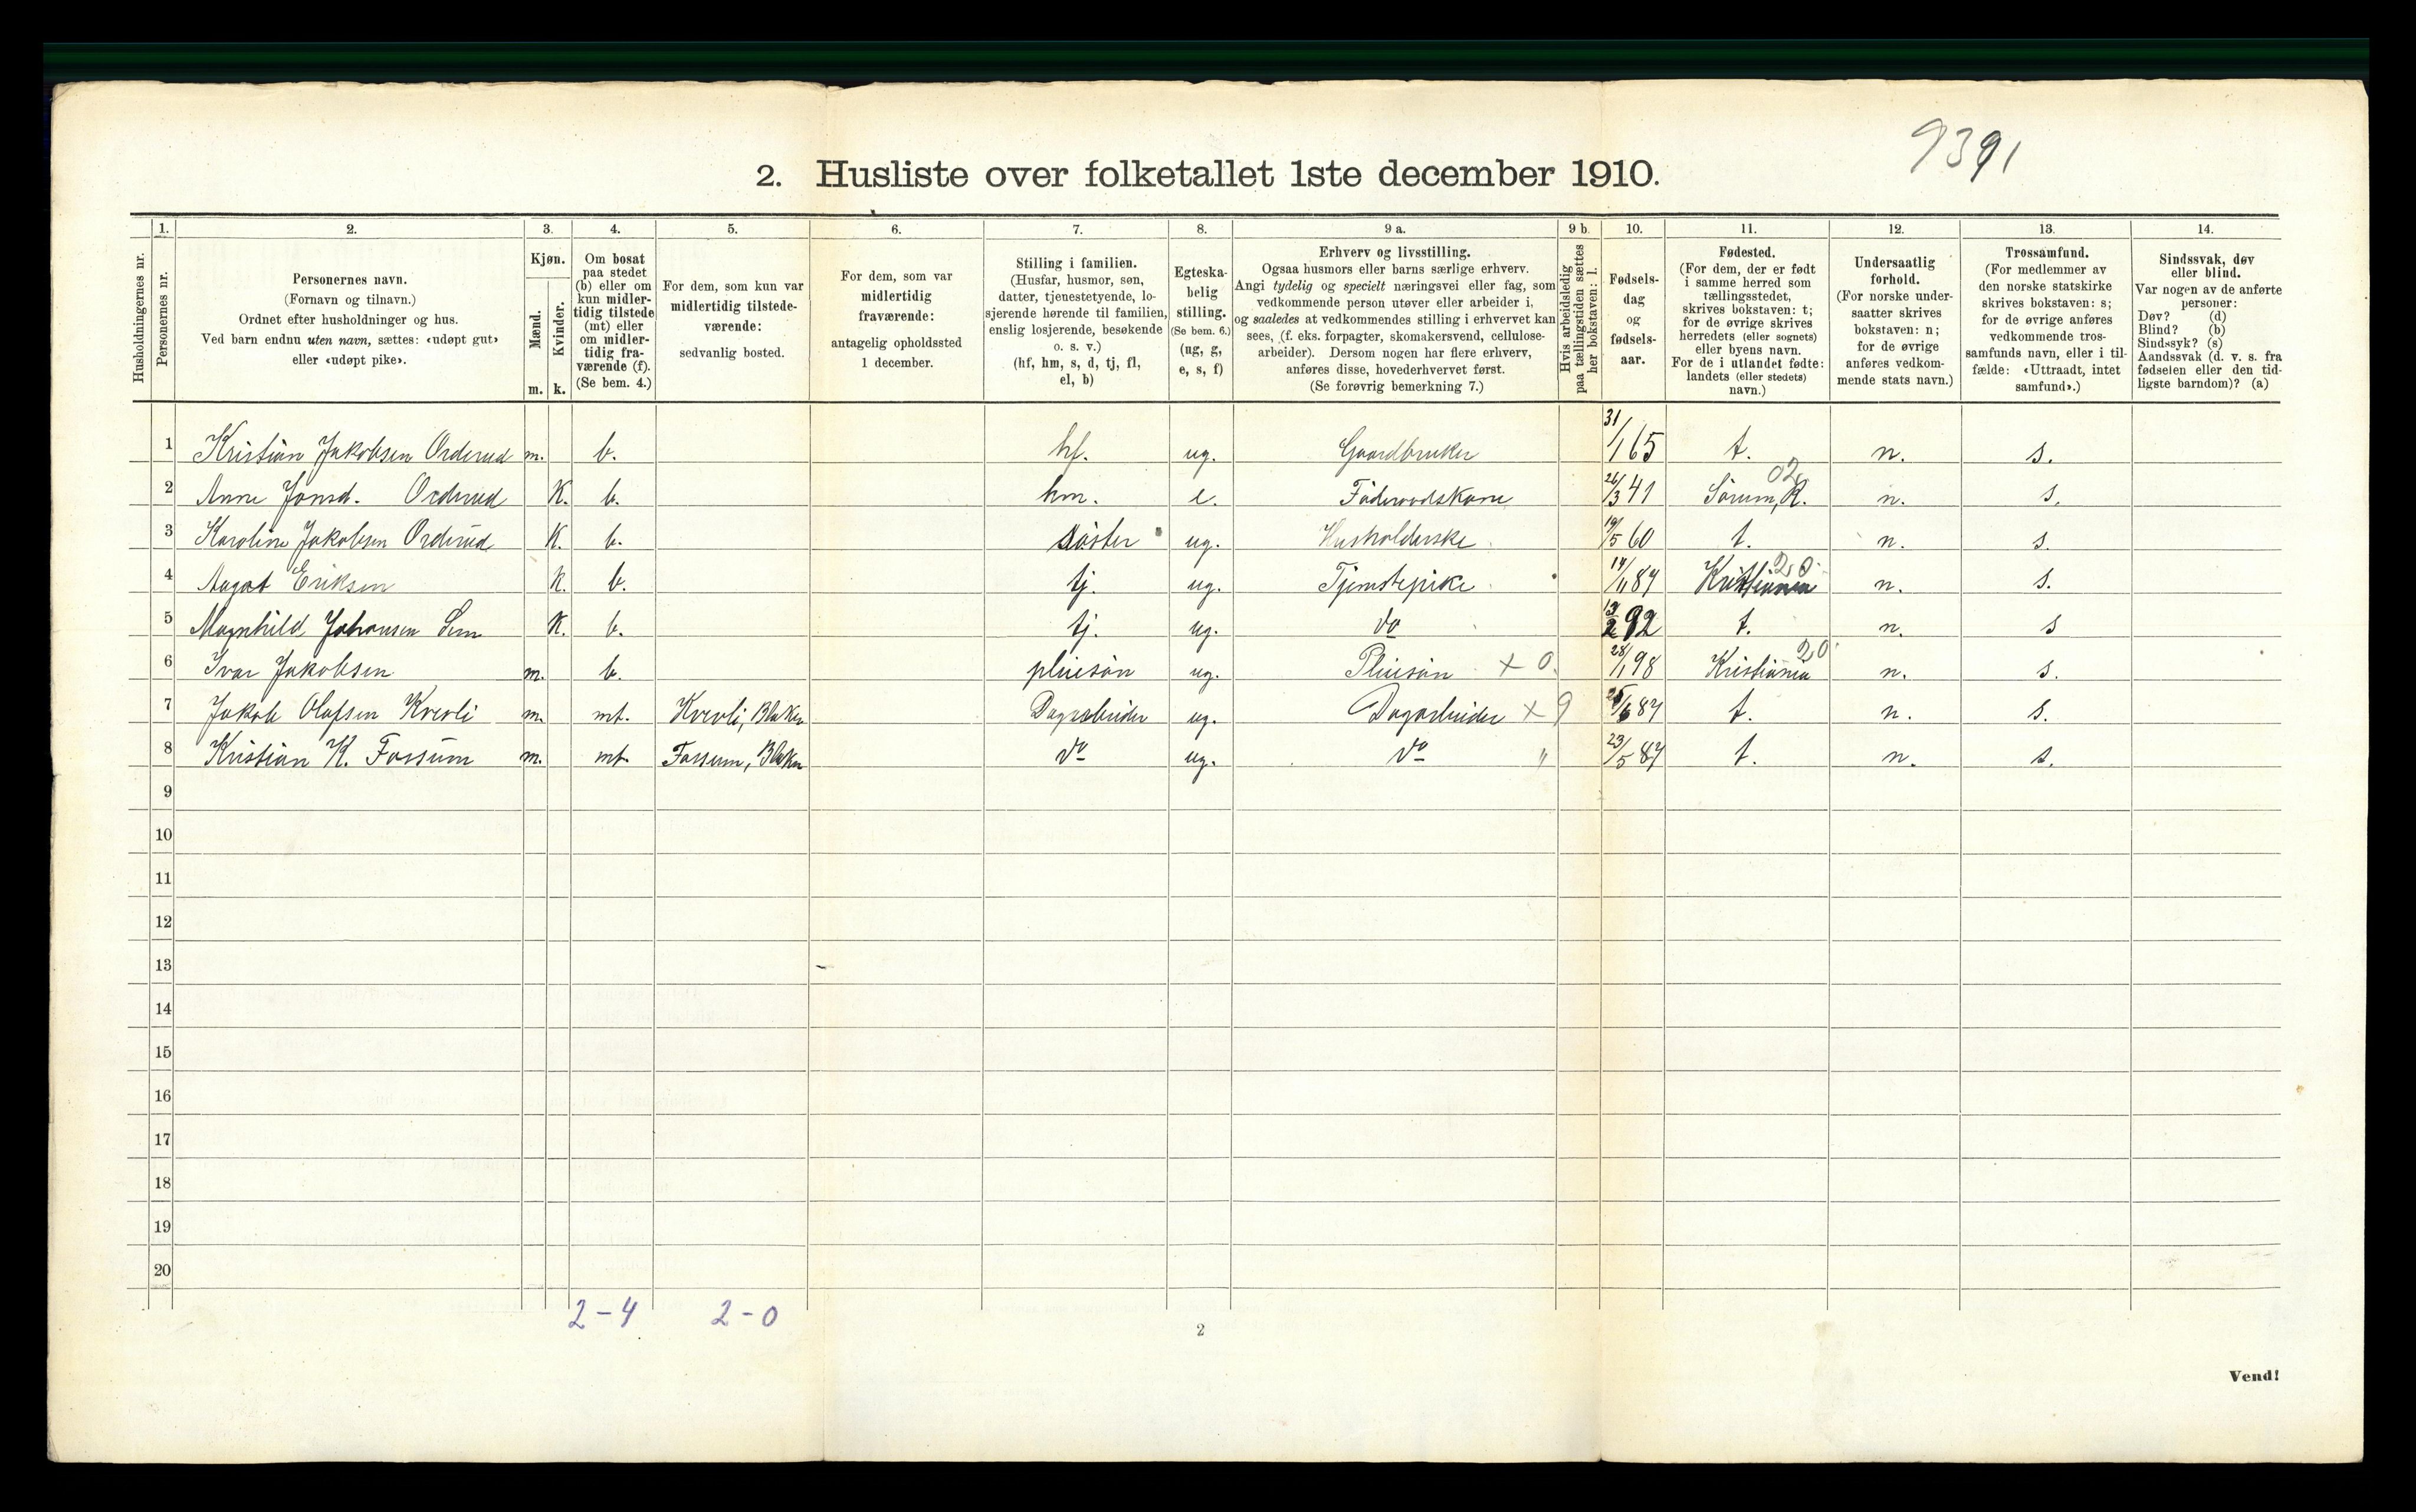 9391
2. Husliste over folketallet 1ste december 1910.
Husholdningernes nr.
1.
Personernes nr.
2.
Personernes navn.
(Fornavn og tilnavn.)
Ordnet efter husholdninger og hus.
Ved barn endnu uten navn, sættes: «udøpt gut»
eller «udøpt pike».
3.
Kjøn.
Mænd.
m.
Kvinder.
k.
4.
Om bosat
paa stedet
(b) eller om
kun midler-
tidig tilstede
(mt) eller
om midler-
tidig fra-
værende (f).
(Se bem. 4.)
5.
For dem, som kun var
midlertidig tilstede-
værende:
sedvanlig bosted.
6.
For dem, som var
midlertidig
fraværende:
antagelig opholdssted
1 december.
7.
Stilling i familien.
(Husfar, husmor, søn,
datter, tjenestetyende, lo-
sjerende hørende til familien,
enslig losjerende, besøkende
o. s. v.)
(hf, hm, s, d, tj, fl,
el, b)
8.
Egteska-
belig
stilling.
(Se bem. 6.)
(ug, g,
e, s, f)
9 a.
Erhverv og livsstilling.
Ogsaa husmors eller barns særlige erhverv.
Angi tydelig og specielt næringsvei eller fag, som
vedkommende person utøver eller arbeider i,
og saaledes at vedkommendes stilling i erhvervet kan
sees, (f. eks. forpagter, skomakersvend, cellulose-
arbeider). Dersom nogen har flere erhverv,
anføres disse, hovederhvervet først.
(Se forøvrig bemerkning 7.)
9 b.
Hvis arbeidsledig
paa tællingstiden sættes
her bokstaven: l.
10.
Fødsels-
dag
og
fødsels-
aar.
11.
Fødested.
(For dem, der er født
i samme herred som
tællingsstedet,
skrives bokstaven: t;
for de øvrige skrives
herredets (eller sognets)
eller byens navn.
For de i utlandet fødte:
landets (eller stedets)
navn.)
12.
Undersaatlig
forhold.
(For norske under-
saatter skrives
bokstaven: n;
for de øvrige
anføres vedkom-
mende stats navn.)
13.
Trossamfund.
(For medlemmer av
den norske statskirke
skrives bokstaven: s;
for de øvrige anføres
vedkommende tros-
samfunds navn, eller i til-
fælde: «Uttraadt, intet
samfund».)
14.
Sindssvak, døv
eller blind.
Var nogen av de anførte
personer:
Døv? (d)
Blind? (b)
Sindssyk? (s)
Aandssvak (d. v. s. fra
fødselen eller den tid-
ligste barndom)? (a)
1 Kristian Jakobsen Orderud m. b. hf. ug. Gaardbruker 31/1 65 t. n. s.
2 Anne Jonsd. Orderud K. b. hm. e. Föderaadskone 26/3 41 Sörum, R. 02 n. s.
3 Karoline Jakobsen Orderud K. b. söster ug. Husholderske 19/5 60 t. n. s.
4 Aagot Eriksen K. b. tj. ug. Tjenestepike 14/11 87 Kristiania 20 n. s.
5 Magnhild Johansen Lem K. b. tj. ug. do 92 t. n. s
6 Ivar Jakobsen m. b. pleiesön ug. Pleiesön × 0 28/1 98 Kristiania 20 n. s.
7 Jakob Olafsen Kverli m. mt. Kverli, Blaker Dagarbeider ug. Dagarbeider × 9 87 t. n. s.
8 Kristian K. Fossum m. mt. Fossum, Blaker do ug. do " 23/5 87 t. n. s.
9
10
11
12
13
14
15
16
17
18
19
20
2-4 2-0
2
Vend!